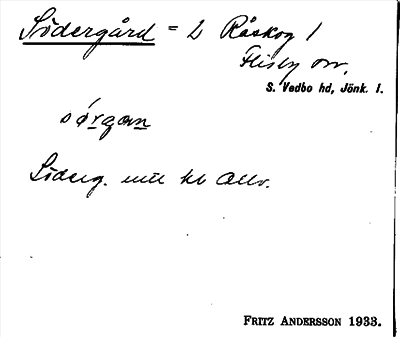 Södergård = 2 Råskog 1
Flisby sn,
S. Vedbo hd, Jönk. l.
sörgan
Söderg. mtl kb Allv.
FRITZ ANDERSSON 1933.